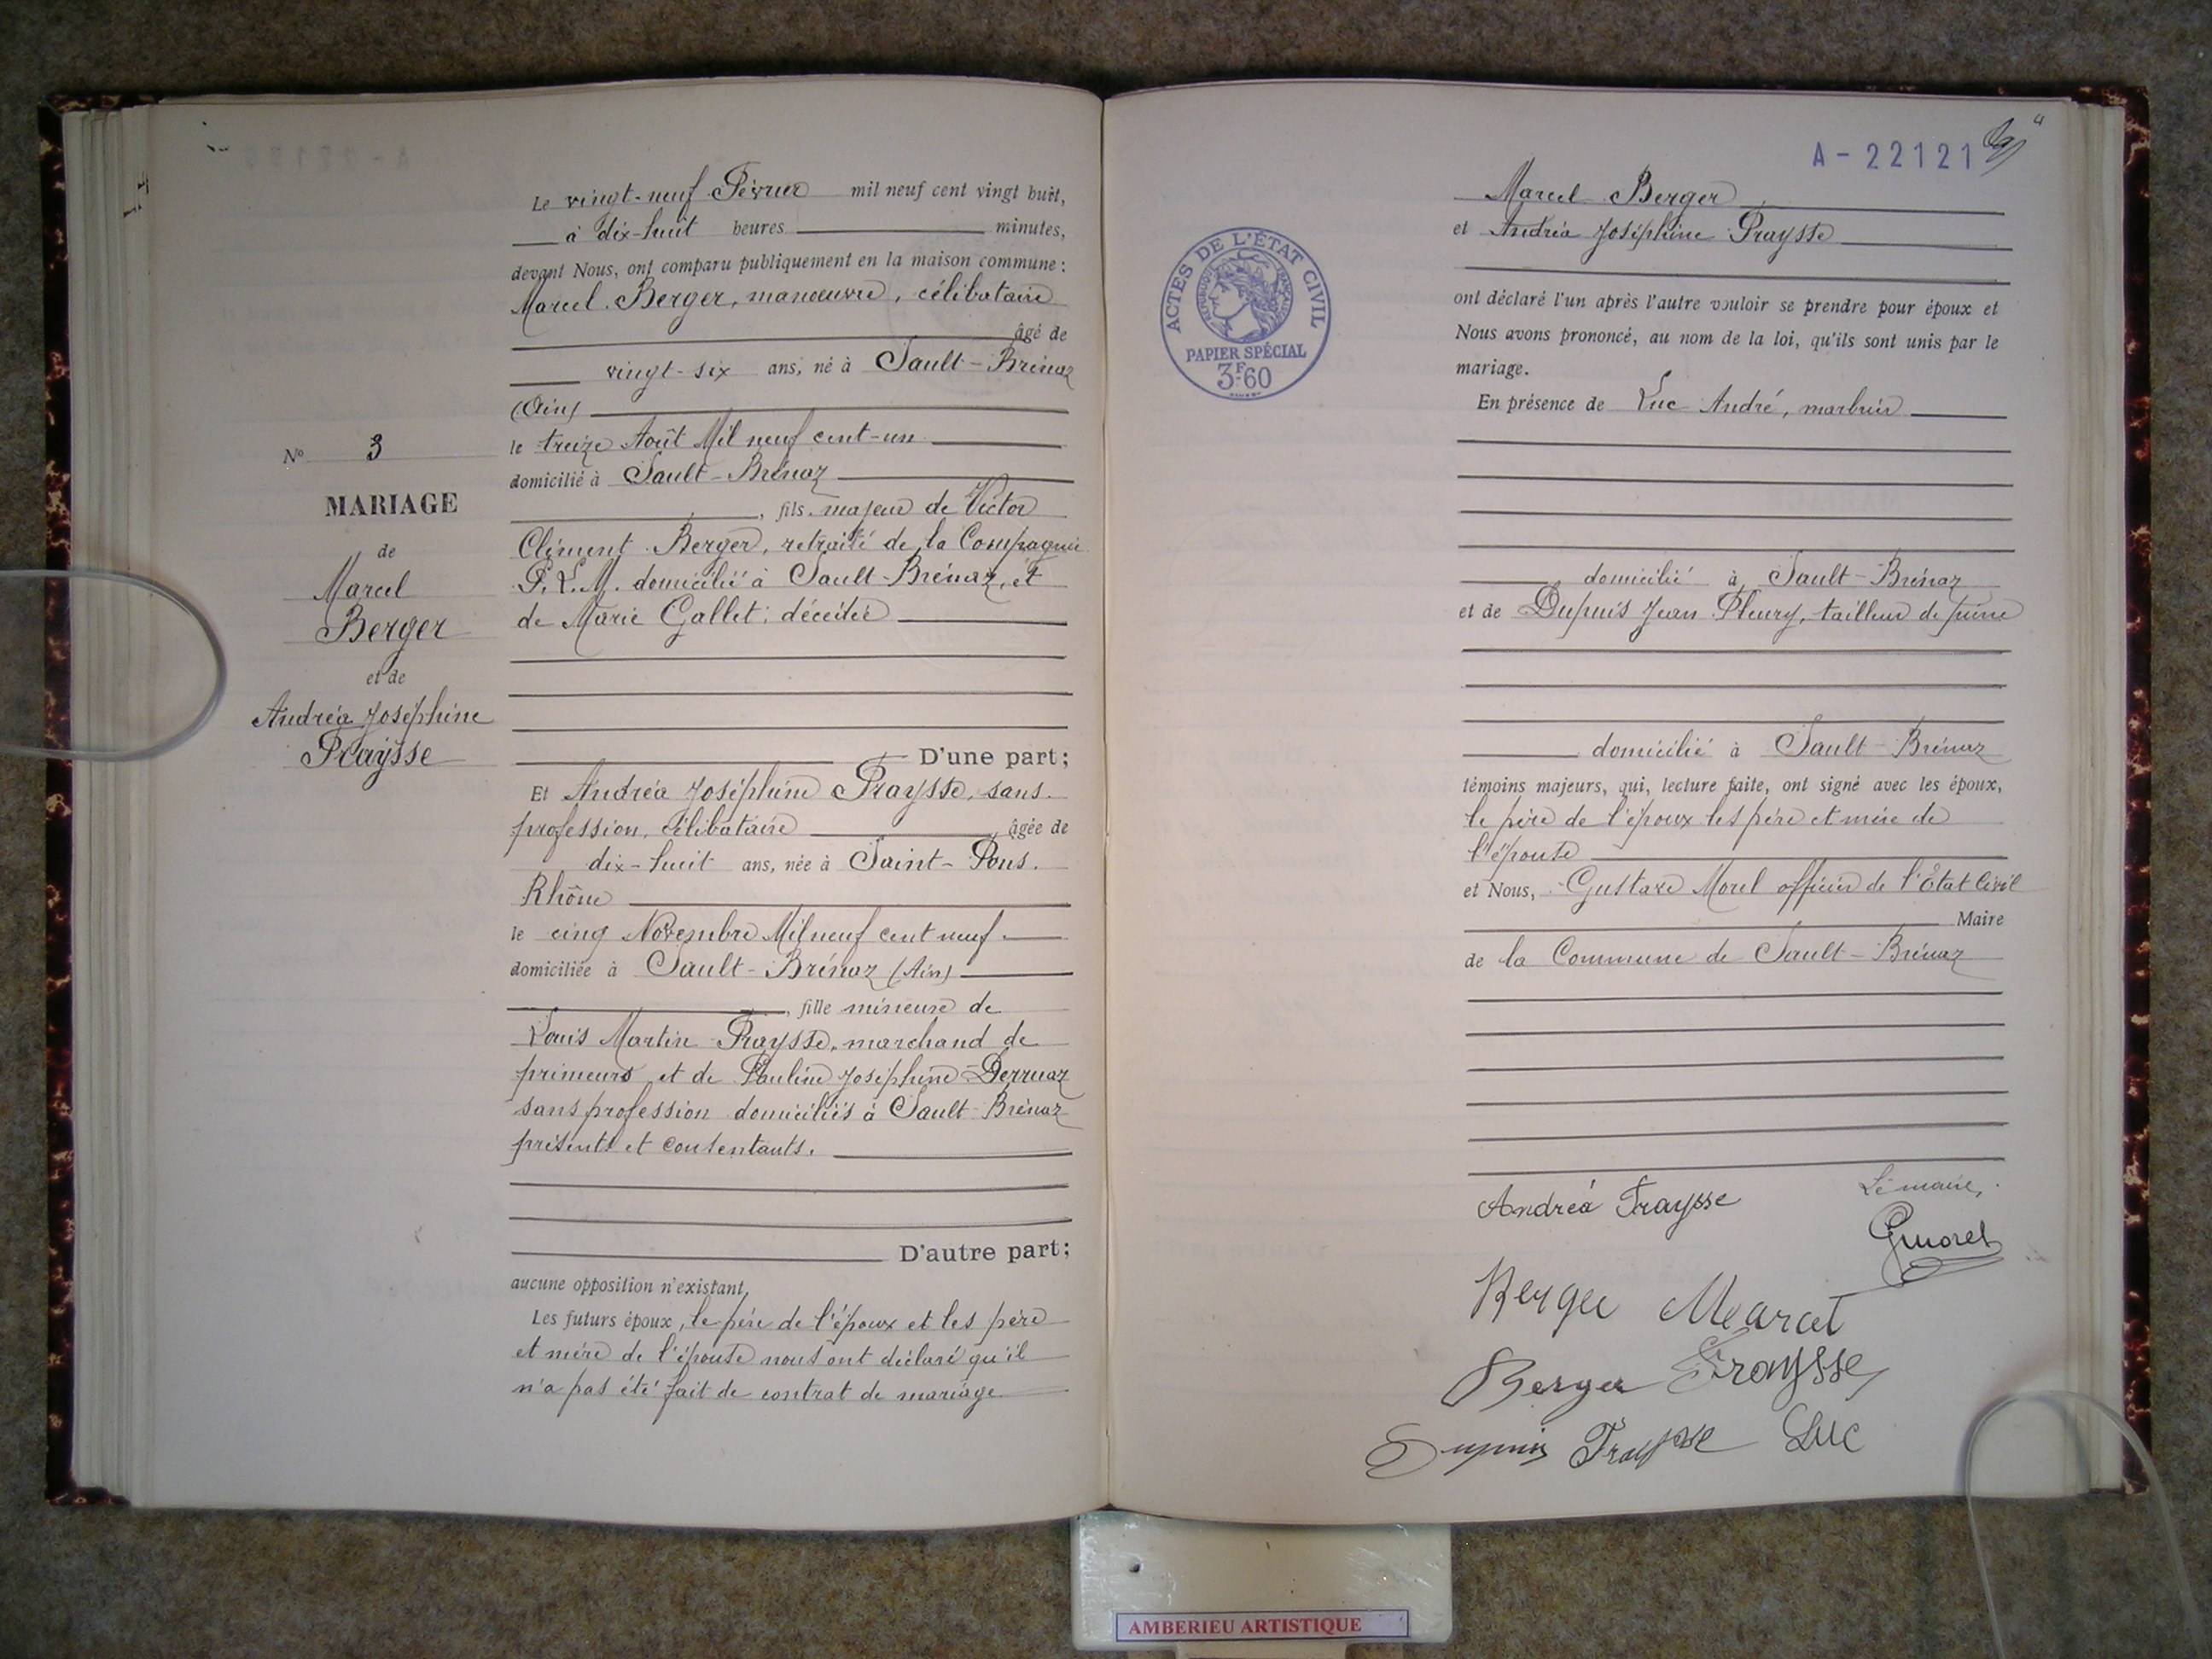 Le vingt-neuf Février mil neuf cent vingt huit,
à dix-huit heures minutes,
devant Nous, ont comparu publiquement en la maison commune :
Marcel Berger, manœuvre, célibataire
âgé de
vingt-six ans, né à Sault-Brénaz
(Ain)
le treize Août Mil neuf cent-un
domicilié à Sault-Brénaz
, fils majeur de Victor
Clément Berger, retraité de la Compagnie
P.L.M. domicilié à Sault-Brénaz, et
de Marie Gallet, décédée
D'une part;
N° 3
MARIAGE
de
Marcel
Berger
et de
Andréa Joséphine
Fraysse
Et Andréa Joséphine Fraysse, sans
profession, célibataire, âgée de
dix-huit ans, née à Saint-Pons.
Rhône
le cinq Novembre Mil neuf cent neuf
domiciliée à Sault-Brénaz (Ain)
, fille mineure de
Louis Martin Fraysse, marchand de
primeurs et de Pauline Joséphine Derruaz
sans profession domiciliés à Sault-Brénaz
présents et consentants.
D'autre part;
aucune opposition n'existant,
Les futurs époux, le père de l'époux et les père
et mère de l'épouse nous ont déclaré qu'il
n'a pas été fait de contrat de mariage
A-22121
Marcel Berger
et Andréa Joséphine Fraysse
ont déclaré l'un après l'autre vouloir se prendre pour époux et
Nous avons prononcé, au nom de la loi, qu'ils sont unis par le
mariage.
En présence de Luc André, marbrier
domicilié à Sault-Brénaz
et de Dupuis Jean Fleury, tailleur de pierre
domicilié à Sault-Brénaz
témoins majeurs, qui, lecture faite, ont signé avec les époux,
le père de l'époux les père et mère de
l'épouse
et Nous, Gustave Morel officier de l'État Civil
Maire
de la Commune de Sault-Brénaz
ACTES DE L'ÉTAT CIVIL
RÉPUBLIQUE FRANÇAISE
PAPIER SPÉCIAL
3F60
Andréa Fraysse
Le maire,
GMorel
Berger Marcel
Berger Fraysse
Dupuis Fraysse Luc
AMBERIEU ARTISTIQUE